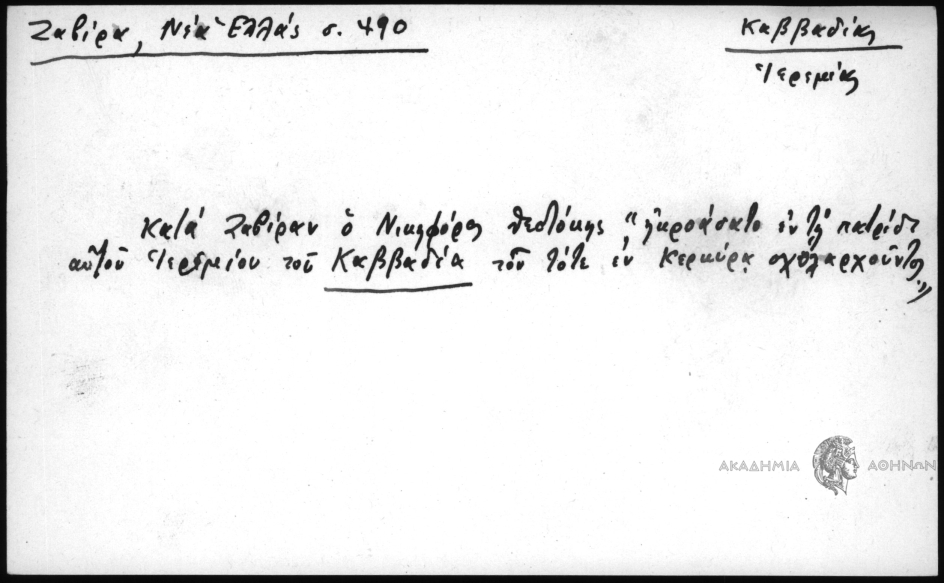 Ζαβίρα, Νέα Ἑλλάς σ. 490
Καββαδίας
Ἱερεμίας
Κατά Ζαβίραν ὁ Νικηφόρος Θεοτόκης "ἠκροάσατο ἐν τῇ πατρίδι
αὐτοῦ Ἱερεμίου τοῦ Καββαδία τοῦ τότε ἐν Κερκύρᾳ σχολαρχοῦντος"
ΑΚΑΔΗΜΙΑ ΑΘΗΝΩΝ